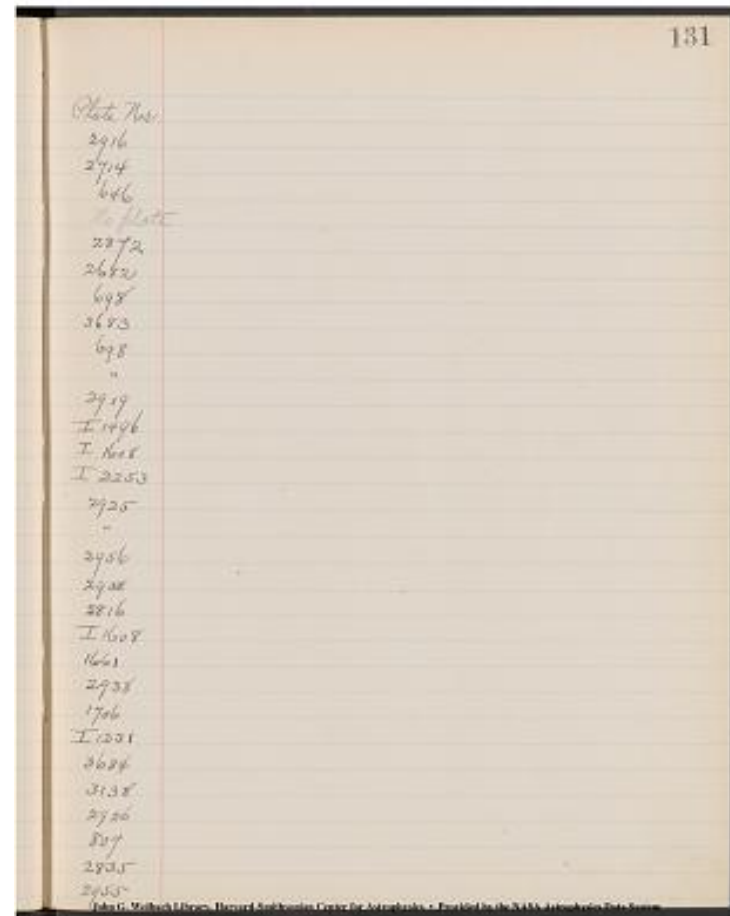 131
Plate Nos.
2916
2714
646
No plate
2872
2682
698
3683
698
"
2919
I 1496
I 1608
I 2253
2925
"
2956
2938
2816
I 1608
1661
2938
1706
I 1231
3684
3138
2926
807
2835
2955
John G. Wolbach Library, Harvard-Smithsonian Center for Astrophysics • Provided by the NASA Astrophysics Data System